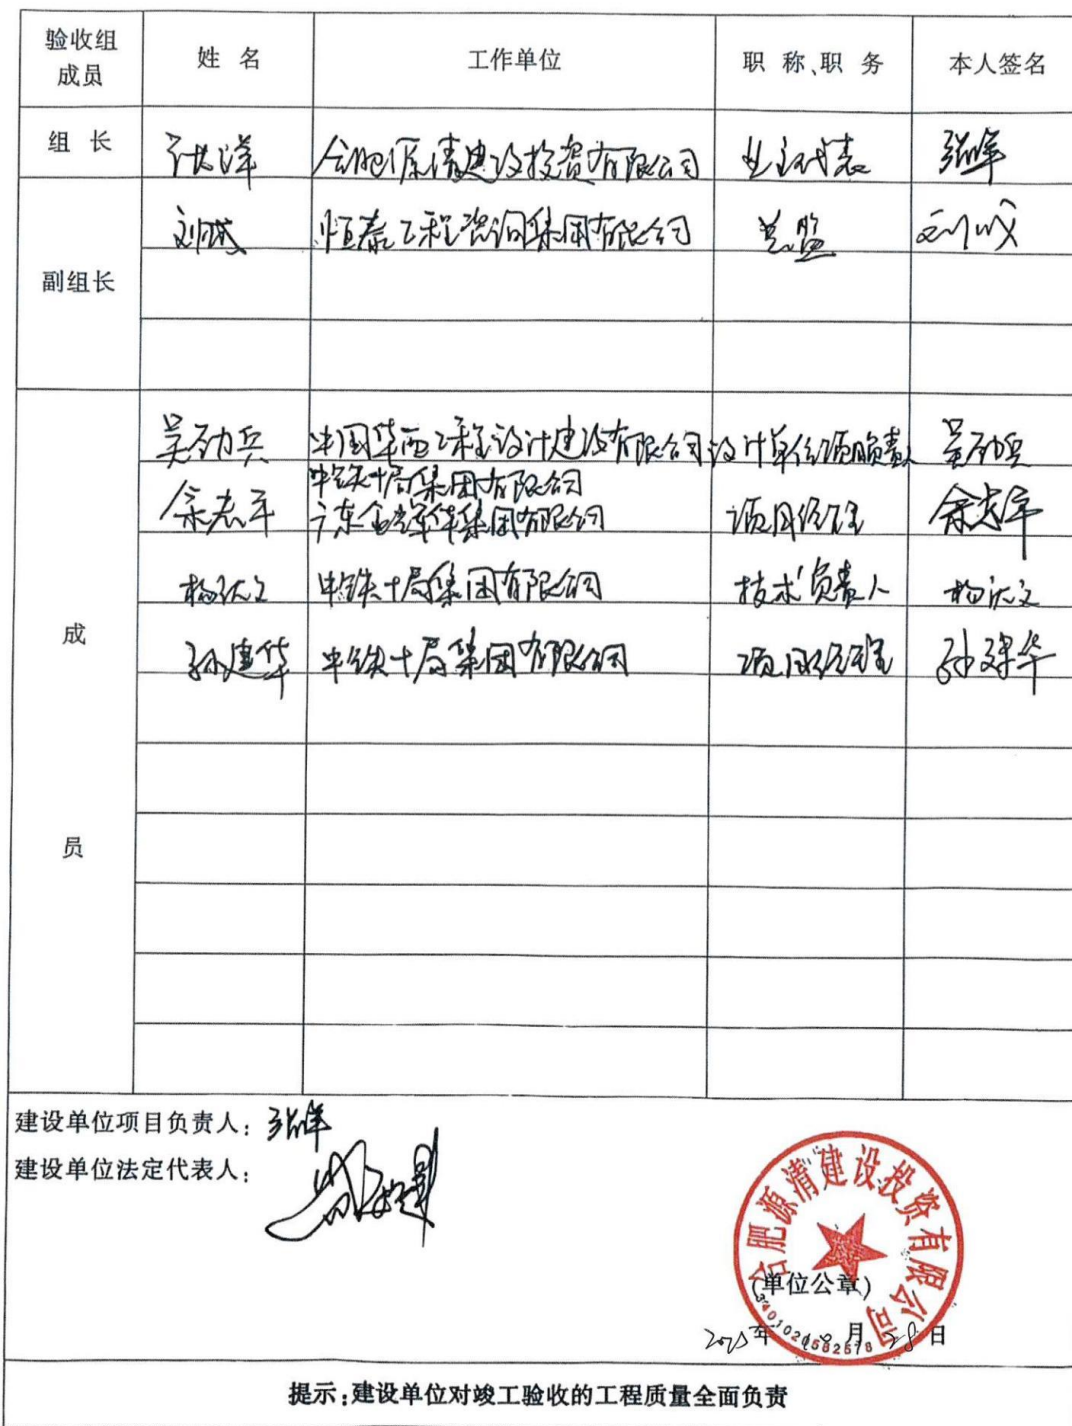 验收组成员 姓名 工作单位 职称、职务 本人签名
组长 张洋 合肥源清建设投资有限公司 业主代表 张洋
刘成 恒泰工程咨询集团有限公司 总监 刘成
副组长
吴劲兵 中国华西工程设计建设有限公司 设计单位项目负责人 吴劲兵
中铁十局集团有限公司
余志军 广东 集团有限公司 项目经理 余志军
杨 文 中铁十局集团有限公司 技术负责人 杨 文
成
孙建华 中铁十局集团有限公司 项目经理 孙建华
员
建设单位项目负责人：张洋
建设单位法定代表人：
合肥源清建设投资有限公司
(单位公章)
年 月 28日
提示：建设单位对竣工验收的工程质量全面负责